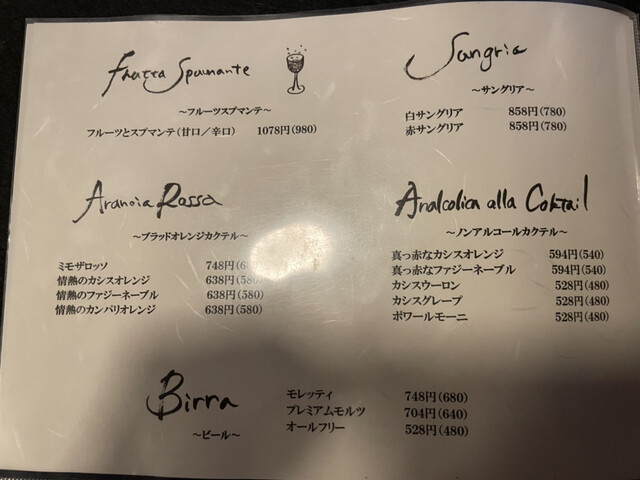 Frutta Spumante
～フルーツスプマンテ～
フルーツとスプマンテ(甘口／辛口) 1078円(980)
Sangria
～サングリア～
白サングリア 858円(780)
赤サングリア 858円(780)
Arancia Rossa
～ブラッドオレンジカクテル～
ミモザロッソ 748円(6
情熱のカシスオレンジ 638円(580)
情熱のファジーネーブル 638円(580)
情熱のカンパリオレンジ 638円(580)
Analcolica alla Coktail
～ノンアルコールカクテル～
真っ赤なカシスオレンジ 594円(540)
真っ赤なファジーネーブル 594円(540)
カシスウーロン 528円(480)
カシスグレープ 528円(480)
ポワールモーニ 528円(480)
Birra
～ビール～
モレッティ 748円(680)
プレミアムモルツ 704円(640)
オールフリー 528円(480)